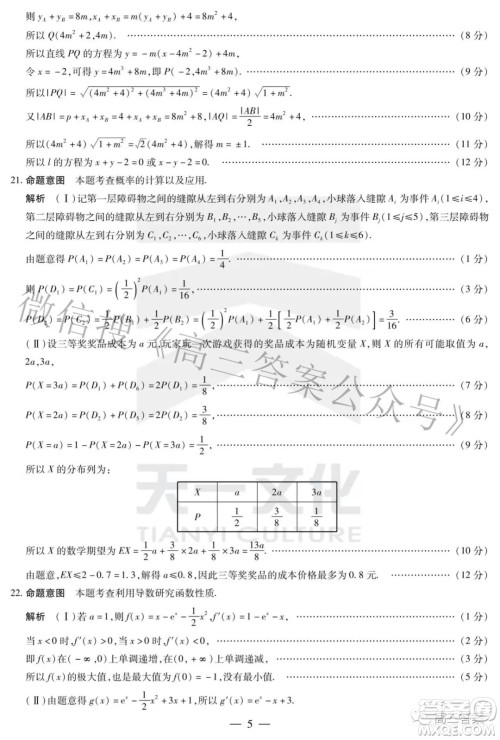 则 y_A + y_B = 8m, x_A + x_B = m(y_A + y_B) + 4 = 8m² + 4,
所以 Q(4m² + 2, 4m). ……(8 分)
所以直线 PQ 的方程为 y = -m(x - 4m² - 2) + 4m,
令 x = -2, 可得 y = 4m³ + 8m, 即 P(-2, 4m³ + 8m). ……(9 分)
所以|PQ| = √((4m² + 4)² + (4m³ + 4m)²) = (4m² + 4)√(1 + m²).
又|AB| = p + x_A + x_B = 4 + x_A + x_B = 8m² + 8, |AQ| = |AB|/2 = 4m² + 4, ……(10 分)
所以(4m² + 4)√(1 + m²) = √2(4m² + 4), 解得 m = ±1. ……(11 分)
所以 l 的方程为 x + y - 2 = 0 或 x - y - 2 = 0. ……(12 分)
21. 命题意图 本题考查概率的计算以及应用.
解析 (Ⅰ)记第一层障碍物之间的缝隙从左到右分别为 A₁, A₂, A₃, A₄, 小球落入缝隙 A_i 为事件 A_i (1≤i≤4),
第二层障碍物之间的缝隙从左到右分别为 B₁, B₂, …, B₅, 小球落入缝隙 B_j 为事件 B_j (1≤j≤5), 第三层障碍物
之间的缝隙从左到右分别为 C₁, C₂, …, C₆, 小球落入缝隙 C_k 为事件 C_k (1≤k≤6).
由题意得 P(A₁) = P(A₂) = P(A₃) = P(A₄) = 1/4. ……(1 分)
则 P(D₁) = P(C₁) = (1/2)² P(A₁) = 1/16, ……(3 分)
= 1/2 P(B₁) + 1/2 P(B₂) = (1/2)² P(A₁) + 1/2 [1/2 P(A₁) + 1/2 P(A₂)] = 3/16. ……(6 分)
(Ⅱ)设三等奖奖品成本为 a 元, 玩家玩一次游戏获得的奖品成本为随机变量 X, 则 X 的所有可能取值为 a,
2a, 3a,
P(X = 3a) = P(D₁) + P(D₆) = 2P(D₁) = 1/8, ……(7 分)
P(X = 2a) = P(D₂) + P(D₅) = 2P(D₂) = 3/8, ……(8 分)
P(X = a) = 1 - P(X = 2a) - P(X = 3a) = 1/2, ……(9 分)
所以 X 的分布列为:
X a 2a 3a
P 1/2 3/8 1/8
所以 X 的数学期望为 EX = 1/2 a + 3/8 × 2a + 1/8 × 3a = 13a/8. ……(10 分)
由题意, EX≤2 - 0.7 = 1.3, 解得 a≤0.8, 因此三等奖奖品的成本价格最多为 0.8 元. ……(12 分)
22. 命题意图 本题考查利用导数研究函数性质.
解析 (Ⅰ)若 a = 1, 则 f(x) = x - eˣ - 1/2 x², f′(x) = 1 - eˣ - x, ……(1 分)
当 x < 0 时, f′(x) > 0, 当 x > 0 时, f′(x) < 0, ……(2 分)
即 f(x) 在(-∞, 0)上单调递增, 在(0, +∞)上单调递减, ……(3 分)
所以 f(x) 的极大值, 也是最大值为 f(0) = -1, 没有最小值. ……(5 分)
(Ⅱ)由题意得 g(x) = eˣ - 1/2 x² + 3x + 1, 所以 g′(x) = eˣ - x + 3.
— 5 —
微信搜《高三答案公众号》
天一文化
TIANYI CULTURE
高三答案